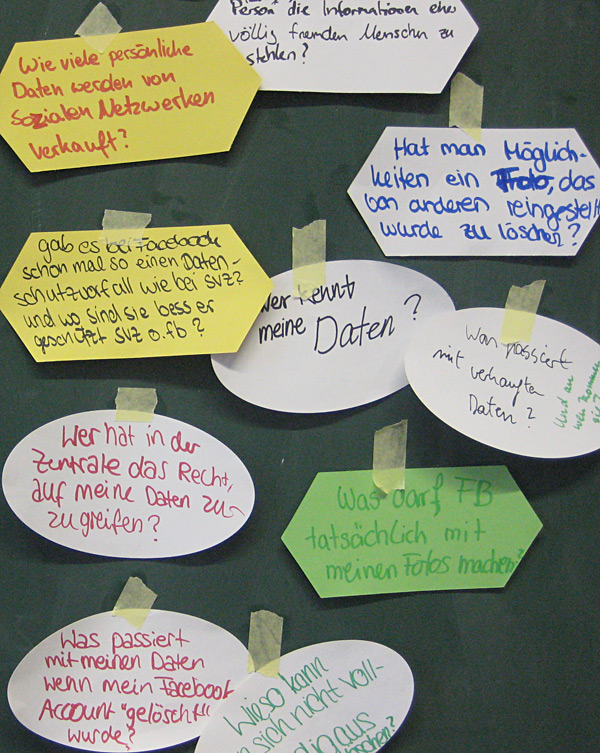 Person die Informationen eher
völlig fremden Menschen zu
stehlen?
Wie viele persönliche
Daten werden von
Sozialen Netzwerken
verkauft?
Hat man Möglich-
keiten ein Foto, das
von anderen reingestellt
wurde zu löschen?
gab es bei Facebook
schon mal so einen Daten-
schutzvorfall wie bei SVZ?
und wo sind sie besser
geschützt SVZ o. fb?
Wer kennt
meine Daten?
Was passiert
mit verkauften
Daten?
Und an
wen kommen
sie?
Wer hat in der
Zentrale das Recht,
auf meine Daten zu-
zugreifen?
Was darf FB
tatsächlich mit
meinen Fotos machen?
Was passiert
mit meinen Daten
wenn mein Facebook
Account "gelöscht"
wurde?
Wieso kann
sich nicht voll-
dig aus
löschen?